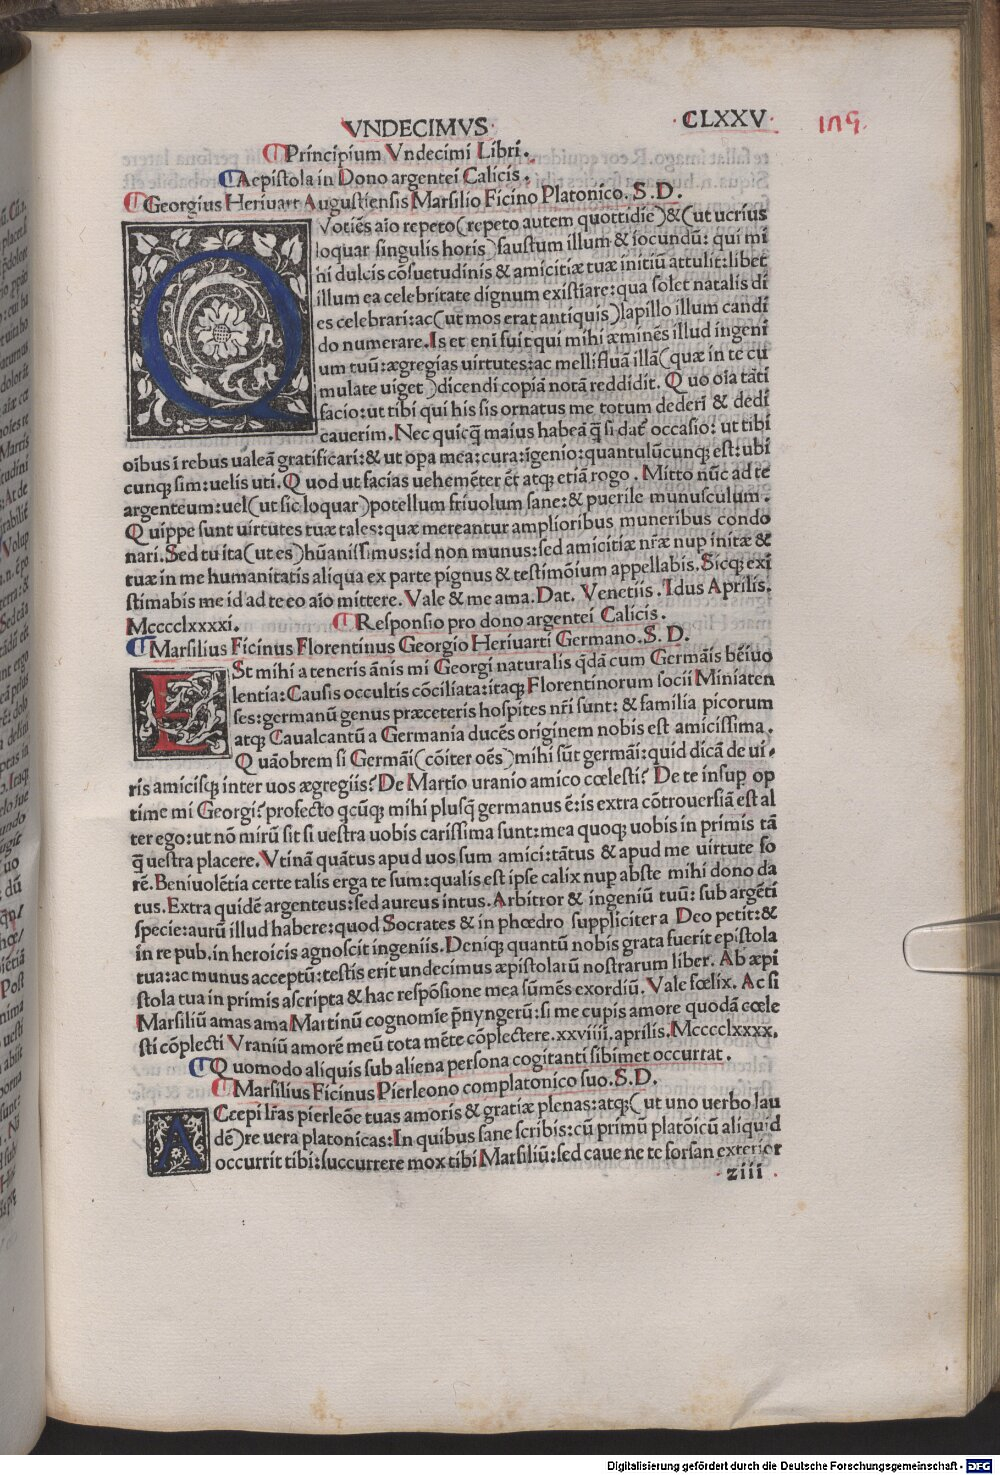 VNDECIMVS · CLXXV · 179.
Principium Vndecimi Libri.
Aepistola in Dono argentei Calicis.
Georgius Heriuart Augustiensis Marsilio Ficino Platonico. S. D.
QVotiẽs aĩo repeto (repeto autem quottidie) & (ut uerius
loquar singulis horis) faustum illum & iocundũ: qui mi
hi dulcis cõsuetudinis & amicitiæ tuæ initiũ attulit: libet
illum ea celebritate dignum existiare: qua solet natalis di
es celebrari: ac (ut mos erat antiquis) lapillo illum candi
do numerare. Is et enĩ fuit qui mihi æminẽs illud ingeni
um tuũ: ægregias uirtutes: ac mellifluã illã (quæ in te cu
mulate uiget) dicendi copiã notã reddidit. Quo oĩa tãti
facio: ut tibi qui his sis ornatus me totum dederĩ & dedi
cauerim. Nec quicq̃ maius habeã q̃ si dat̃ occasio: ut tibi
oĩbus ĩ rebus ualeã gratificari: & ut opa mea: cura: ĩgenio: quantulũcunqꝫ est: ubi
cunqꝫ sim: uelis uti. Quod ut facias uehemẽter ẽt atqꝫ etiã rogo. Mitto nũc ad te
argenteum: uel (ut sic loquar) potellum friuolum sane: & puerile munusculum.
Quippe sunt uirtutes tuæ tales: quæ mereantur amplioribus muneribus condo
nari. Sed tu ita (ut es) hũanissimus: id non munus: sed amicitiæ nr̃æ nup initæ &
tuæ in me humanitatis aliqua ex parte pignus & testimõium appellabis. Sicqꝫ exi
stimabis me id ad te eo aĩo mittere. Vale & me ama. Dat. Venetiis. Idus Aprilis.
Mcccclxxxxi. Responsio pro dono argentei Calicis.
Marsilius Ficinus Florentinus Georgio Heriuarti Germano. S. D.
ESt mihi a teneris ãnis mi Georgi naturalis q̃dã cum Germãis bẽiuo
lentia: Causis occultis cõciliata: itaqꝫ Florentinorum socii Miniaten
ses: germanũ genus præceteris hospites nr̃i sunt: & familia picorum
atqꝫ Caualcantũ a Germania ducẽs originem nobis est amicissima.
Quãobrem si Germãi (cõiter oẽs) mihi sũt germãi: quid dicã de ui
ris amicisqꝫ inter uos ægregiis? De Martio uranio amico cœlesti? De te insup op
time mi Georgi? profecto qcũqꝫ mihi plusq̃ germanus ẽ: is extra cõtrouersiã est al
ter ego: ut nõ mirũ sit si uestra uobis carissima sunt: mea quoqꝫ uobis in primis tã
q̃ uestra placere. Vtinã quãtus apud uos sum amici: tãtus & apud me uirtute fo
rẽ. Beniuolẽtia certe talis erga te sum: qualis est ipse calix nup abste mihi dono da
tus. Extra quidẽ argenteus: sed aureus intus. Arbitror & ingeniũ tuũ: sub argẽti
specie: aurũ illud habere: quod Socrates & in phœdro suppliciter a Deo petit: &
in re pub. in heroicis agnoscit ingeniis. Deniqꝫ quantũ nobis grata fuerit epistola
tua: ac munus acceptũ: testis erit undecimus æpistolarũ nostrarum liber. Ab æpi
stola tua in primis ascripta & hac respõsione mea sũmẽs exordiũ. Vale fœlix. Ac si
Marsiliũ amas ama Martinũ cognomĩe p̃nyngerũ: si me cupis amore quodã cœle
sti cõplecti Vraniũ amorẽ meũ tota mẽte cõplectere. xxviiii. aprilis. Mcccclxxxx.
Quomodo aliquis sub aliena persona cogitanti sibimet occurrat.
Marsilius Ficinus Pierleono complatonico suo. S. D.
ACcepi lr̃as pierleõe tuas amoris & gratiæ plenas: atqꝫ (ut uno uerbo lau
dẽ) re uera platonicas: In quibus sane scribis: cũ primũ platõicũ aliquid
occurrit tibi: succurrere mox tibi Marsiliũ: sed caue ne te forsan exterior
ziii
Digitalisierung gefördert durch die Deutsche Forschungsgemeinschaft - DFG